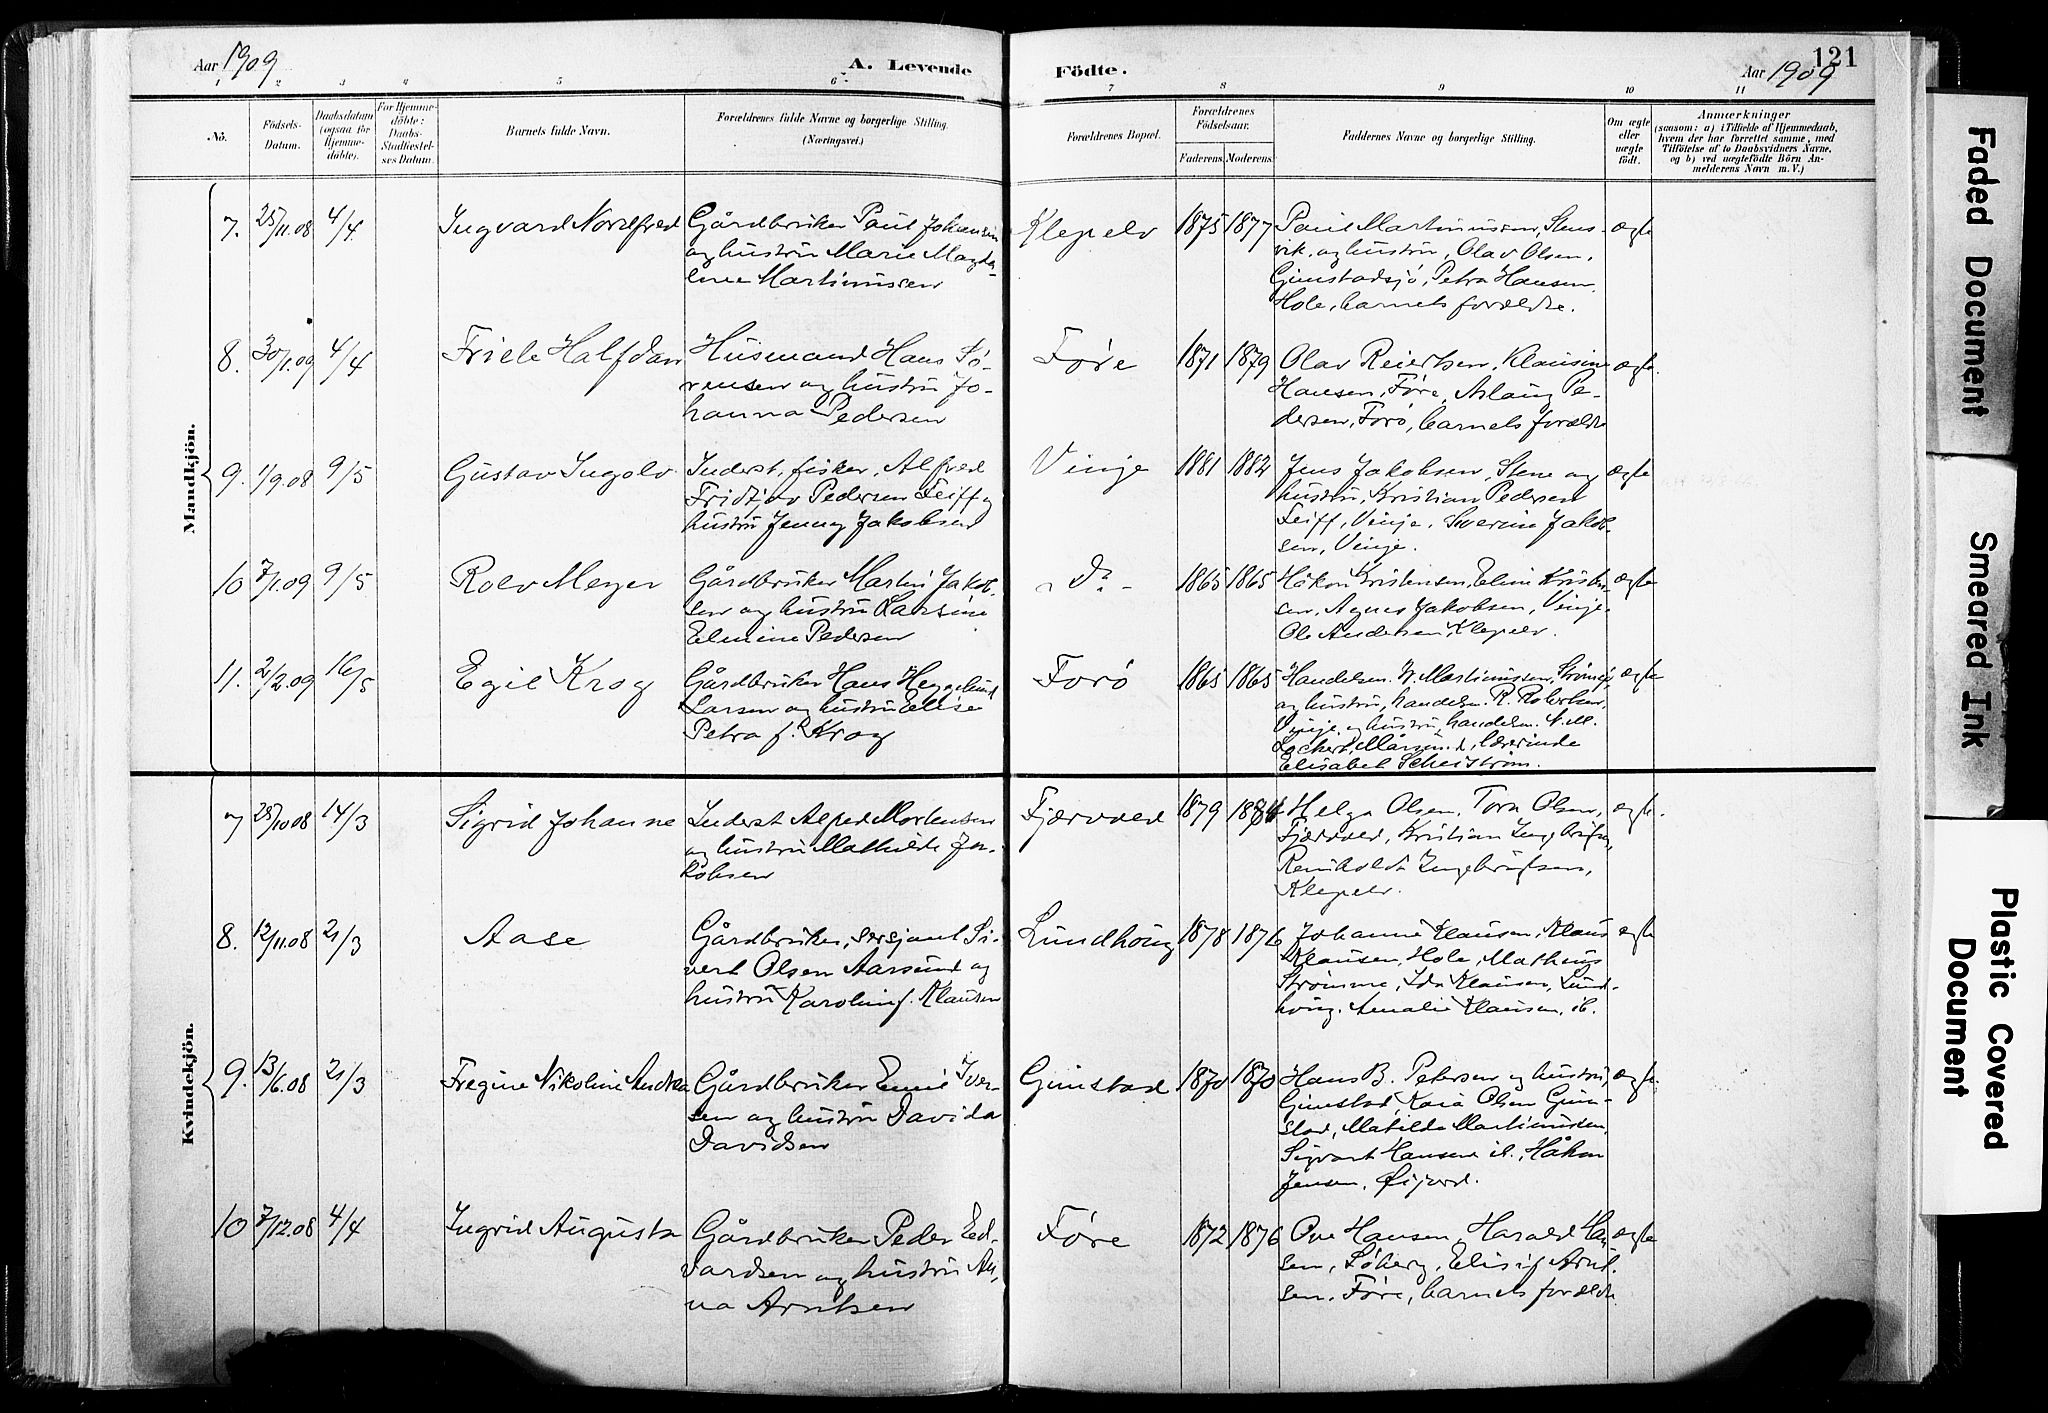 Aar 1909
A. Levende
Födte.
121
Aar 1909
1 2 3 4 5 6 7 8 9 10 11
Nô.
Födsels-
Datum.
Daabsdatum
(ogsaa for
Hjemme-
döbte).
For Hjemme-
döbte:
Daabs-
Stadfæstel-
ses Datum.
Barnets fulde Navn.
Forældrenes fulde Navne og borgerlige Stilling.
(Næringsvei.)
Forældrenes Bopæl.
Forældrenes
Födselsaar.
Faderens.
Moderens.
Faddernes Navne og borgerlige Stilling.
Om ægte
eller
uægte
födt.
Anmærkninger
(saasom: a) i Tilfælde af Hjemmedaab,
hvem der har forrettet samme, med
Tilföielse af to Daabsvidners Navne,
og b) ved uægtefödte Börn An-
melderens Navn m. V.)
Mandkjön.
7. 25/11.08 4/4 Ingvard Nordfred
Gårdbruker Paul Johansen
og hustru Marie Magda-
lene Martinussen
Klepelv 1875 1877
Paul Martinussen, Stens-
vik, og hustru, Olav Olsen,
Gimstadsjö, Petra Hansen
Hole, barnets forældre.
ægte
8. 30/1.09 4/4 Friele Halfdan
Husmand Hans Sö-
rensen og hustru Jo-
hanna Pedersen
Føre 1871 1879
Olav Reiertsen, Klausine
Hansen, Føre, Aslaug Pe-
dersen, Forø, barnets forældre
ægte.
9. 1/9.08 9/5 Gustav Ingolv
Inderst, fisker, Alfred
Fridtjov Pedersen Leiff og
hustru Jenny Jakobsen
Vinje 1881 1882
Jens Jakobsen, Stene og
hustru, Kristian Pedersen
Leiff, Vinje, Severine Jakob-
sen, Vinje.
ægte
10 7/1.09 9/5 Rolv Meyer
Gårdbruker Martin Jakob-
sen og hustru Larsine
Elmine Pedersen
- Do - 1865 1865
Håkon Kristensen, Eline Kristen-
sen, Agnes Jakobsen, Vinje.
Ole Andersen, Klepelv.
ægte
11. 2/2.09 16/5 Egil Krog
Gårdbruker Hans Heggelund
Larsen og hustru Elise
Petra f. Krog
Forö 1865 1865
Handelsm. W. Martinussen,
og hustru, handelsm. R. Robertsen,
Vinje, og hustru, handelsm. N. M.
Lockert, Mårsund, lærerinde
Elisabet
ægte
Kvindekjön.
7 25/10 08 14/3 Sigrid Johanne
Inderst Alfred Mortensen
og hustru Mathilde Ja-
kobsen
Fjærvold 1879
Helga Olsen, Tora Olsen,
Fjærvold, Kristian Ingebrigtsen,
Reinholdt Ingebrigtsen,
Klepelv.
ægte.
8. 12/11.08 21/3 Aase
Gårdbruker, sersjant Si-
vert Olsen Aarsund og
hustru Karolin f. Klausen
Lundhöug 1878 1876
Johanne Klausen, Klaus
Klausen, Hole, Matheus
Strömme, Ida Klausen, Lund-
höug, Amalie Klausen, ib.
ægte
9. 13/6.08 21/3 Fregine Nikoline Andrea
Gårdbruker Emil Iver-
sen og hustru Davida
Davidsen
Gimstad 1870 1870
Hans B. Petersen og hustru,
Gimstad, Kaia Olsen Gim-
stad, Matilda Martinussen,
Sigvart Hansen ib., Håkon
Jensen, Øijord.
ægte.
10 7/12.08 4/4 Ingrid Augusta
Gårdbruker Peder Ed-
vardsen og hustru An-
na Arntsen
Føre 1872 1876
Ove Hansen, Harald Han
sen, Söberg, Elisif Arnt-
sen, Føre, barnets forældre.
ægte
Faded Document
Smeared Ink
Plastic Covered
Document